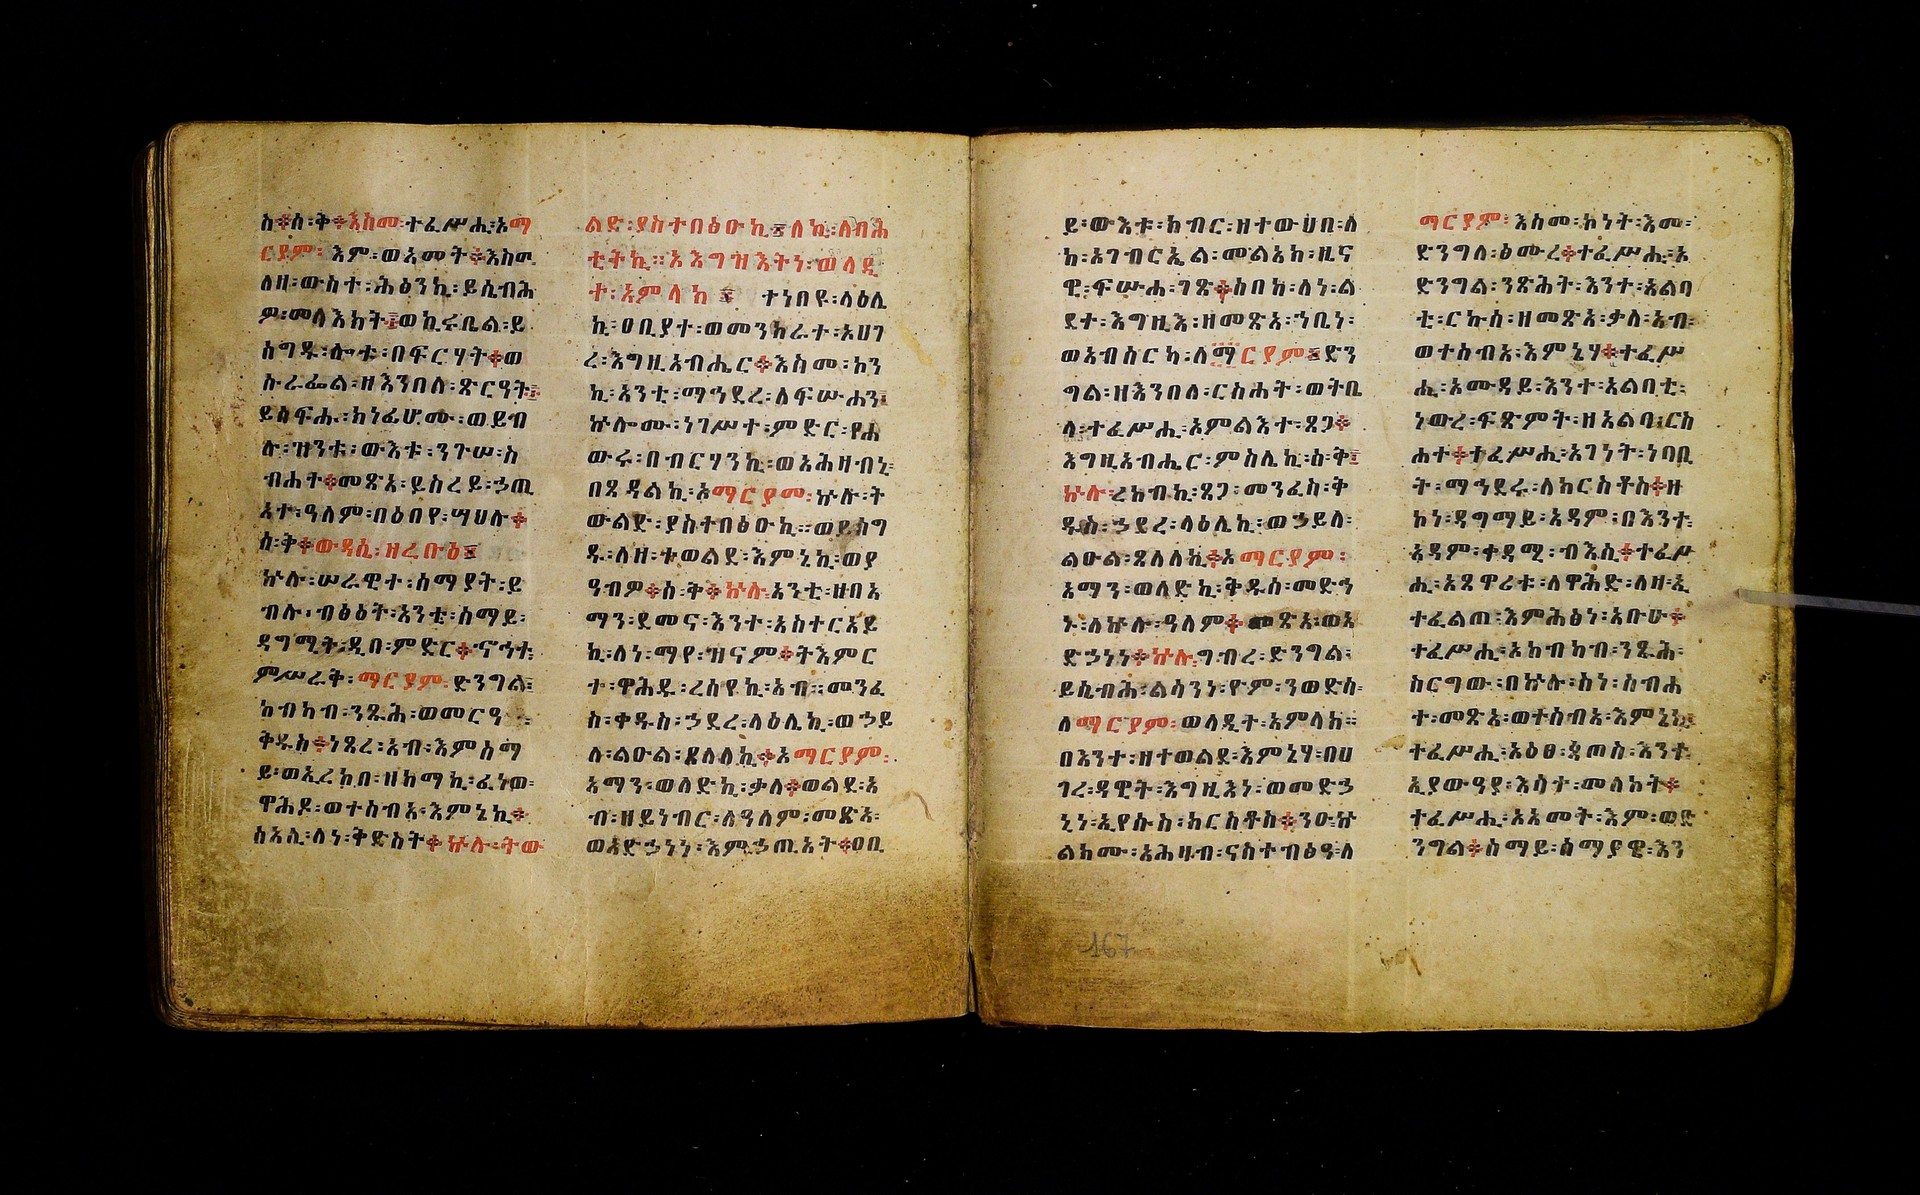 ስ፡ቅ፡እስመ፡ተፈሥሒ፡ኦማ
ርያም፡እም፡ወአመት፡እስመ
ለዘ፡ውስተ፡ሕፅንኪ፡ይሴብሕ
ዎ፡መላእክት፤ወኪሩቤል፡ይ
ሰግዱ፡ሎቱ፡በፍርሃት፡ወ
ሱራፌል፡ዘእንበለ፡ጽርዓት፤
ይሰፍሑ፡ክነፊሆሙ፡ወይብ
ሉ፡ዝንቱ፡ውእቱ፡ንጉሠ፡ስ
ብሐት፡መጽአ፡ይስረይ፡ኃጢ
አተ፡ዓለም፡በዕበየ፡ሣህሉ፡
ስ፡ቅ፡ውዳሴ፡ዘረቡዕ፤
ኵሉ፡ሠራዊተ፡ሰማያት፡ይ
ብሉ፡ብፅዕት፡አንቲ፡ሰማይ፡
ዳግሚት፡ዲበ፡ምድር፡ኆኅተ፡
ምሥራቅ፡ማርያም፡ድንግል፤
ከብካብ፡ንጹሕ፡ወመርዓ፡
ቅዱስ፡ነጸረ፡አብ፡እምሰማ
ይ፡ወኢረከበ፡ዘከማኪ፡ፈነወ፡
ዋሕዶ፡ወተሰብአ፡እምኔኪ፡
ሰአሊ፡ለነ፡ቅድስት፡ኵሉ፡ትው
ልድ፡ያስተበፅዑኪ፤ለኪ፡ለባሕ
ቲትኪ፡፡ኦእግዝእትነ፡ወላዲ
ተ፡አምላክ፤ተነበዩ፡ላዕሌ
ኪ፡ዐቢያተ፡ወመንክራተ፡አሀገ
ረ፡እግዚአብሔር፡እስመ፡ኮን
ኪ፡አንቲ፡ማኅደረ፡ለፍሡሐን፤
ኵሎሙ፡ነገሥተ፡ምድር፡የሐ
ውሩ፡በብርሃንኪ፡ወአሕዛብኒ፡
በጸዳልኪ፡ኦማርያም፡ኵሉ፡ት
ውልድ፡ያስተበፅዑኪ፡፡ወይሰግ
ዱ፡ለዘ፡ተወልደ፡እምኔኪ፡ወያ
ዓብዎ፡ስ፡ቅ፡ኵሉ፡አንቲ፡ዘበአ
ማን፡ደመና፡እንተ፡አስተርአይ
ኪ፡ለነ፡ማየ፡ዝናም፡ትእምር
ተ፡ዋሕዱ፡ረሰየኪ፡አብ፡፡መንፈ
ስ፡ቀዱስ፡ኃደረ፡ላዕሌኪ፡ወኃይ
ለ፡ልዑል፡ጸለለኪ፡ኦማርያም፡
አማን፡ወለድኪ፡ቃለ፡ወልደ፡አ
ብ፡ዘይነብር፡ለዓለም፡መጽአ፡
ወአድኃነነ፡እምኃጢአት፡ዐቢ
ይ፡ውእቱ፡ክብር፡ዘተውህበ፡ለ
ከ፡አገብርኤል፡መልአክ፡ዜና
ዊ፡ፍሡሐ፡ገጽ፡ሰበከ፡ለነ፡ል
ደተ፡እግዚእ፡ዘመጽአ፡ኀቤነ፡
ወአብሰርካ፡ለማርያም፤ድን
ግል፡ዘእንበለ፡ርስሐት፡ወትቤ
ላ፡ተፈሥሒ፡ኦምልእተ፡ጸጋ፡
እግዚአብሔር፡ምስሌኪ፡ስ፡ቅ፤
ኵሉ፡ረከብኪ፡ጸጋ፡መንፈስ፡ቅ
ዱስ፡ኃደረ፡ላዕሌኪ፡ወኃይለ፡
ልዑል፡ጸለለኪ፡ኦማርያም፡
አማን፡ወለድኪ፡ቅዱስ፡መድኀ
ኑ፡ለኵሉ፡ዓለም፡መጽአ፡ወአ
ድኃነነ፡ኵሉ፡ግብረ፡ድንግል፡
ይሴብሕ፡ልሳንነ፡ዮም፡ንወድስ፡
ለማርያም፡ወላዲተ፡አምላክ፡፡
በእንተ፡ዘተወልደ፡እምኔሃ፡በሀ
ገረ፡ዳዊት፡እግዚእነ፡ወመድኃ
ኒነ፡ኢየሱስ፡ክርስቶስ፡ንዑኵ
ልክሙ፡አሕዛብ፡ናስተብፅዓ፡ለ
ማርያም፡እስመ፡ኮነት፡እመ፡
ድንግለ፡ፅሙረ፡ተፈሥሒ፡ኦ
ድንግል፡ንጽሕት፡እንተ፡አልባ
ቲ፡ርኩስ፡ዘመጽአ፡ቃለ፡አብ፡
ወተሰብአ፡እምኔሃ፡ተፈሥ
ሒ፡ኦሙዳይ፡እንተ፡አልባቲ፡
ነውረ፡ፍጽምት፡ዘአልባ፡ርስ
ሐተ፡ተፈሥሒ፡ኦገነት፡ነባቢ
ት፡ማኅደሩ፡ለክርስቶስ፡ዘ
ኮነ፡ዳግማይ፡አዳም፡በእንተ፡
አዳም፡ቀዳሚ፡ብእሲ፡ተፈሥ
ሒ፡አጸዋሪቱ፡ለዋሕድ፡ለዘ፡ኢ
ተፈልጠ፡እምሕፅነ፡አቡሁ፡
ተፈሥሒ፡ኦከብካብ፡ንጹሕ፡
ስርግው፡በኵሉ፡ስነ፡ስብሐ
ተ፡መጽአ፡ወተሰብአ፡እምኔኪ፡
ተፈሥሒ፡አዕፀ፡ጳጦስ፡እንተ፡
ኢያውዓያ፡እሳተ፡መለኮት፡
ተፈሥሒ፡ኦአመት፡እም፡ወድ
ንግል፡ሰማይ፡ሰማያዊ፡እን